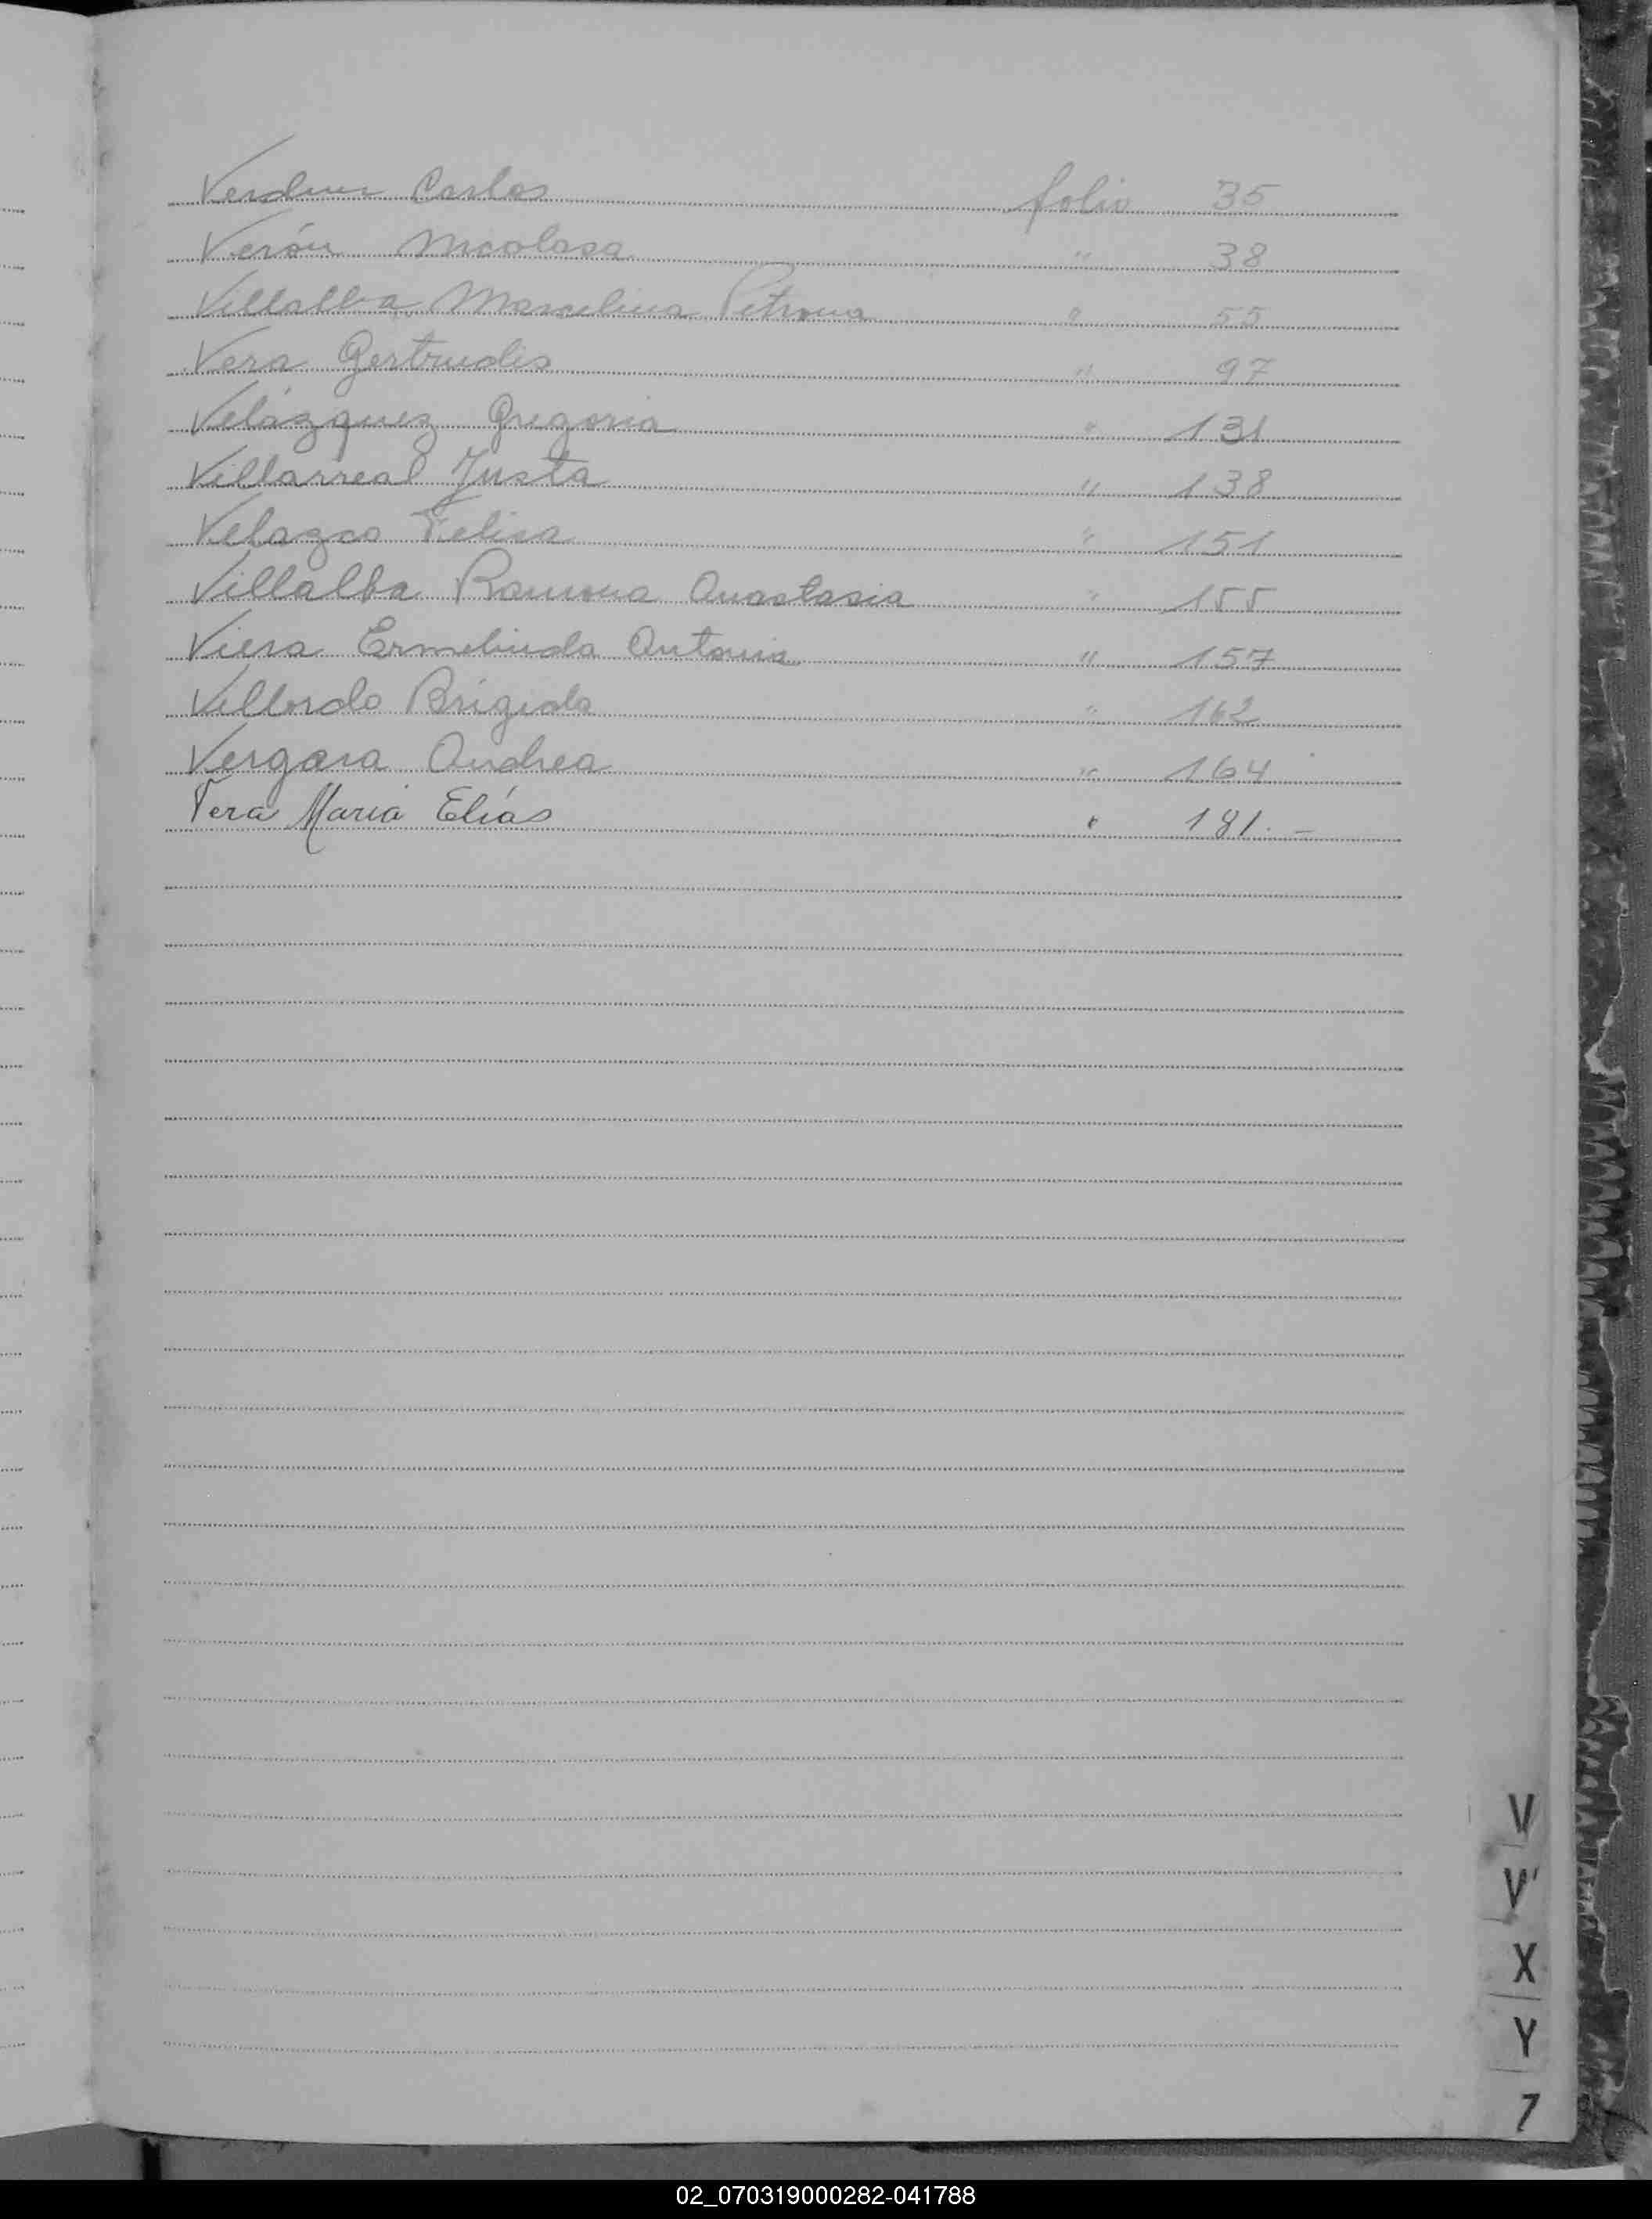 Verdun Carlos folio 35
Verón Nicolasa " 38
Villalba Marcelina Petrona " 55
Vera Gertrudis " 97
Velázquez Gregoria " 131
Villarreal Justa " 138
Velazco Felisa " 151
Villalba Ramona Anastasia " 155
Viera Ermelinda Antonia " 157
Villordo Brigida " 162
Vergara Andrea " 164
Vera María Elías " 181.-
V
W
X
Y
Z
02_070319000282-041788